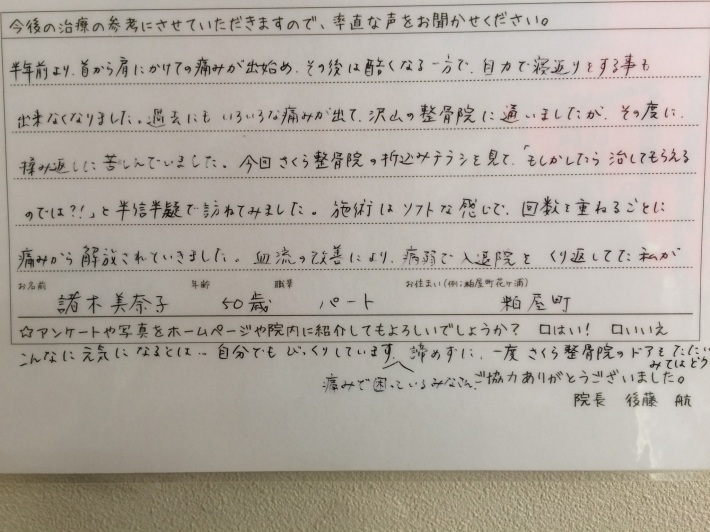 今後の治療の参考にさせていただきますので、率直な声をお聞かせください。
半年前より、首から肩にかけての痛みが出始め、その後は酷くなる一方で、自力で寝返りをする事も
出来なくなりました。過去にも いろいろな痛みが出て、沢山の整骨院に通いましたが、その度に、
揉み返しに苦しんでいました。今回さくら整骨院の折込みチラシを見て、「もしかしたら治してもらえる
のでは?!」と半信半疑で訪ねてみました。施術はソフトな感じで、回数を重ねるごとに
痛みから解放されていきました。血流の改善により、病弱で入退院をくり返してた私が
お名前 年齢 職業 お住まい(例:粕屋町花ヶ浦)
諸木美奈子 50歳 パート 粕屋町
☆アンケートや写真をホームページや院内に紹介してもよろしいでしょうか? 口はい! 口いいえ
こんなに元気になるとは…自分でもびっくりしています。諦めずに、一度さくら整骨院のドアをたたい
みてはどう
痛みで困っているみなさん
ご協力ありがとうございました。
院長 後藤 航